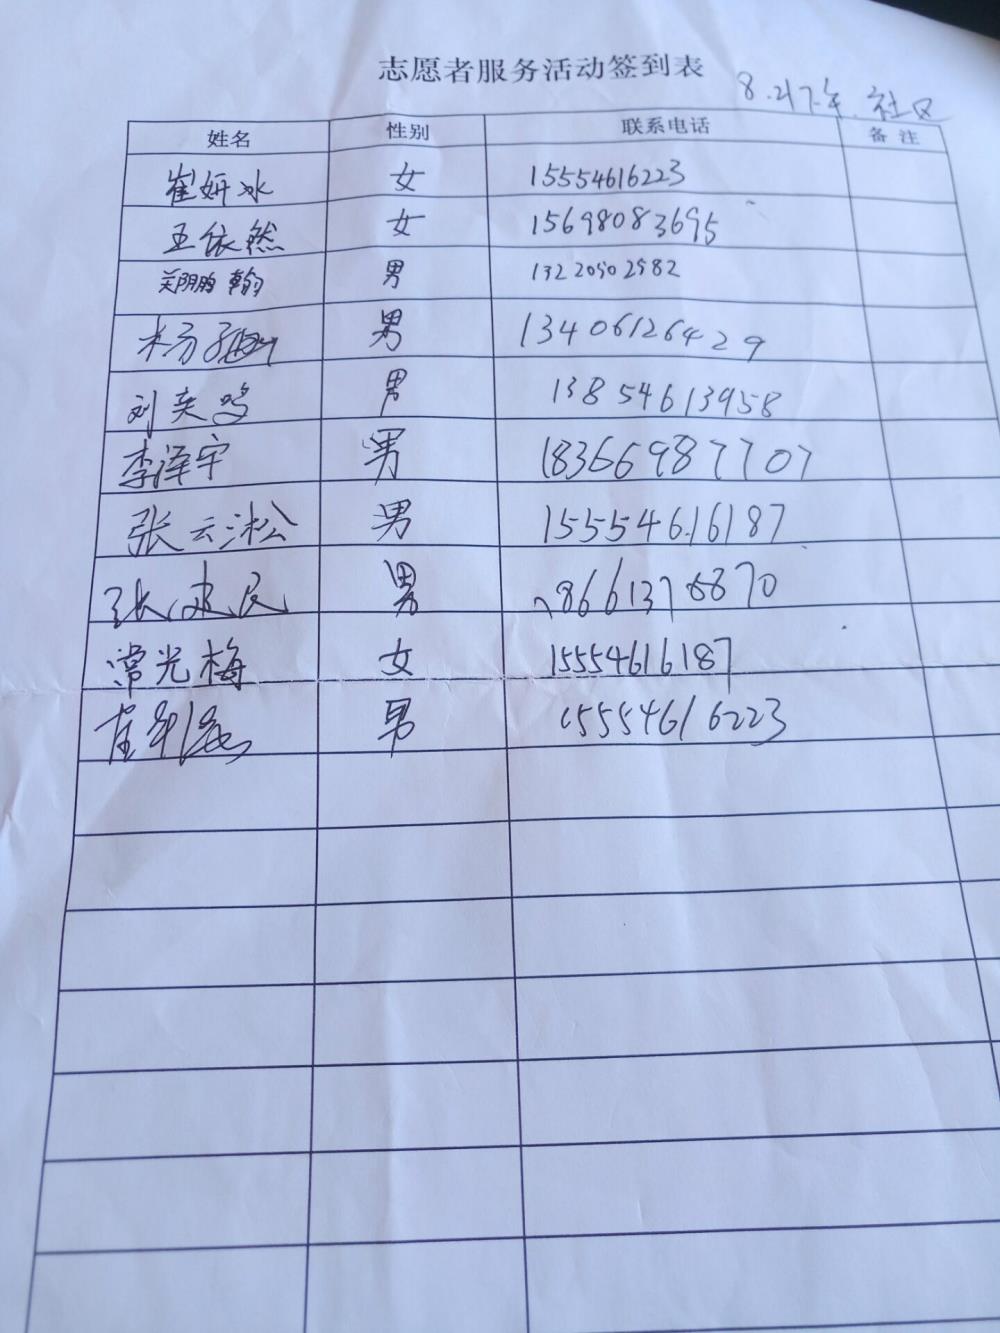 志愿者服务活动签到表
8.21下午 社区
姓名 性别 联系电话 备注
崔妍冰 女 15554616223
王依然 女 15698083695
郑鹏翰 男 13220502582
杨 男 13406126429
刘奕鸣 男 13854613958
李泽宇 男 18366987707
张云淞 男 15554616187
张建民 男
常光梅 女 15554616187
崔 男 15554616223